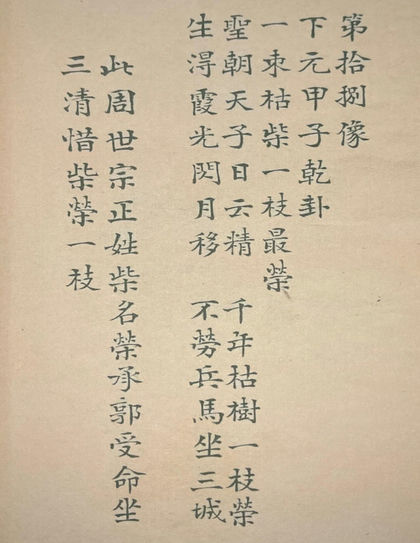 第拾捌像
下元甲子乾卦
一束枯柴一枝最榮
聖朝天子日云精 千年枯樹一枝榮
生淂霞光閃月移 不勞兵馬坐三城
此周世宗正姓柴名榮承郭受命坐
三清惜柴榮一枝